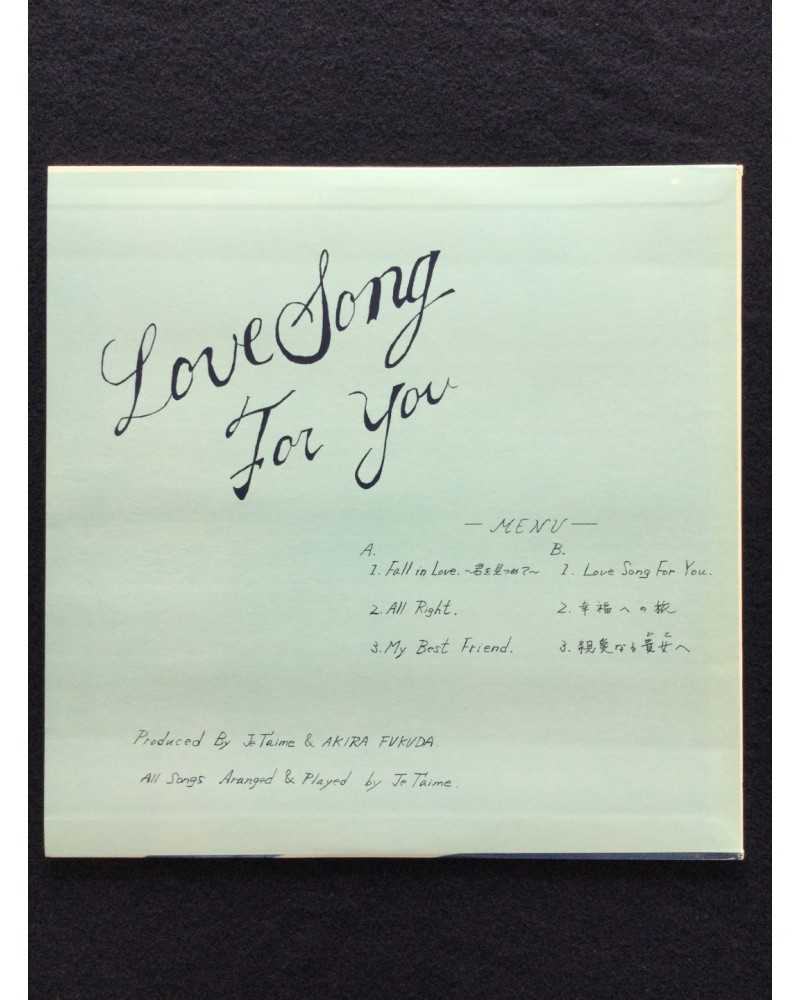 Love Song
For You
— MENU —
A.
1. Fall in Love. ~君を見つめて~
2. All Right.
3. My Best Friend.
B.
1. Love Song For You.
2.幸福への旅
3. 親愛なる貴女へ
Produced By Je T'aime & AKIRA FUKUDA.
All Songs Aranged & Played by Je T'aime.